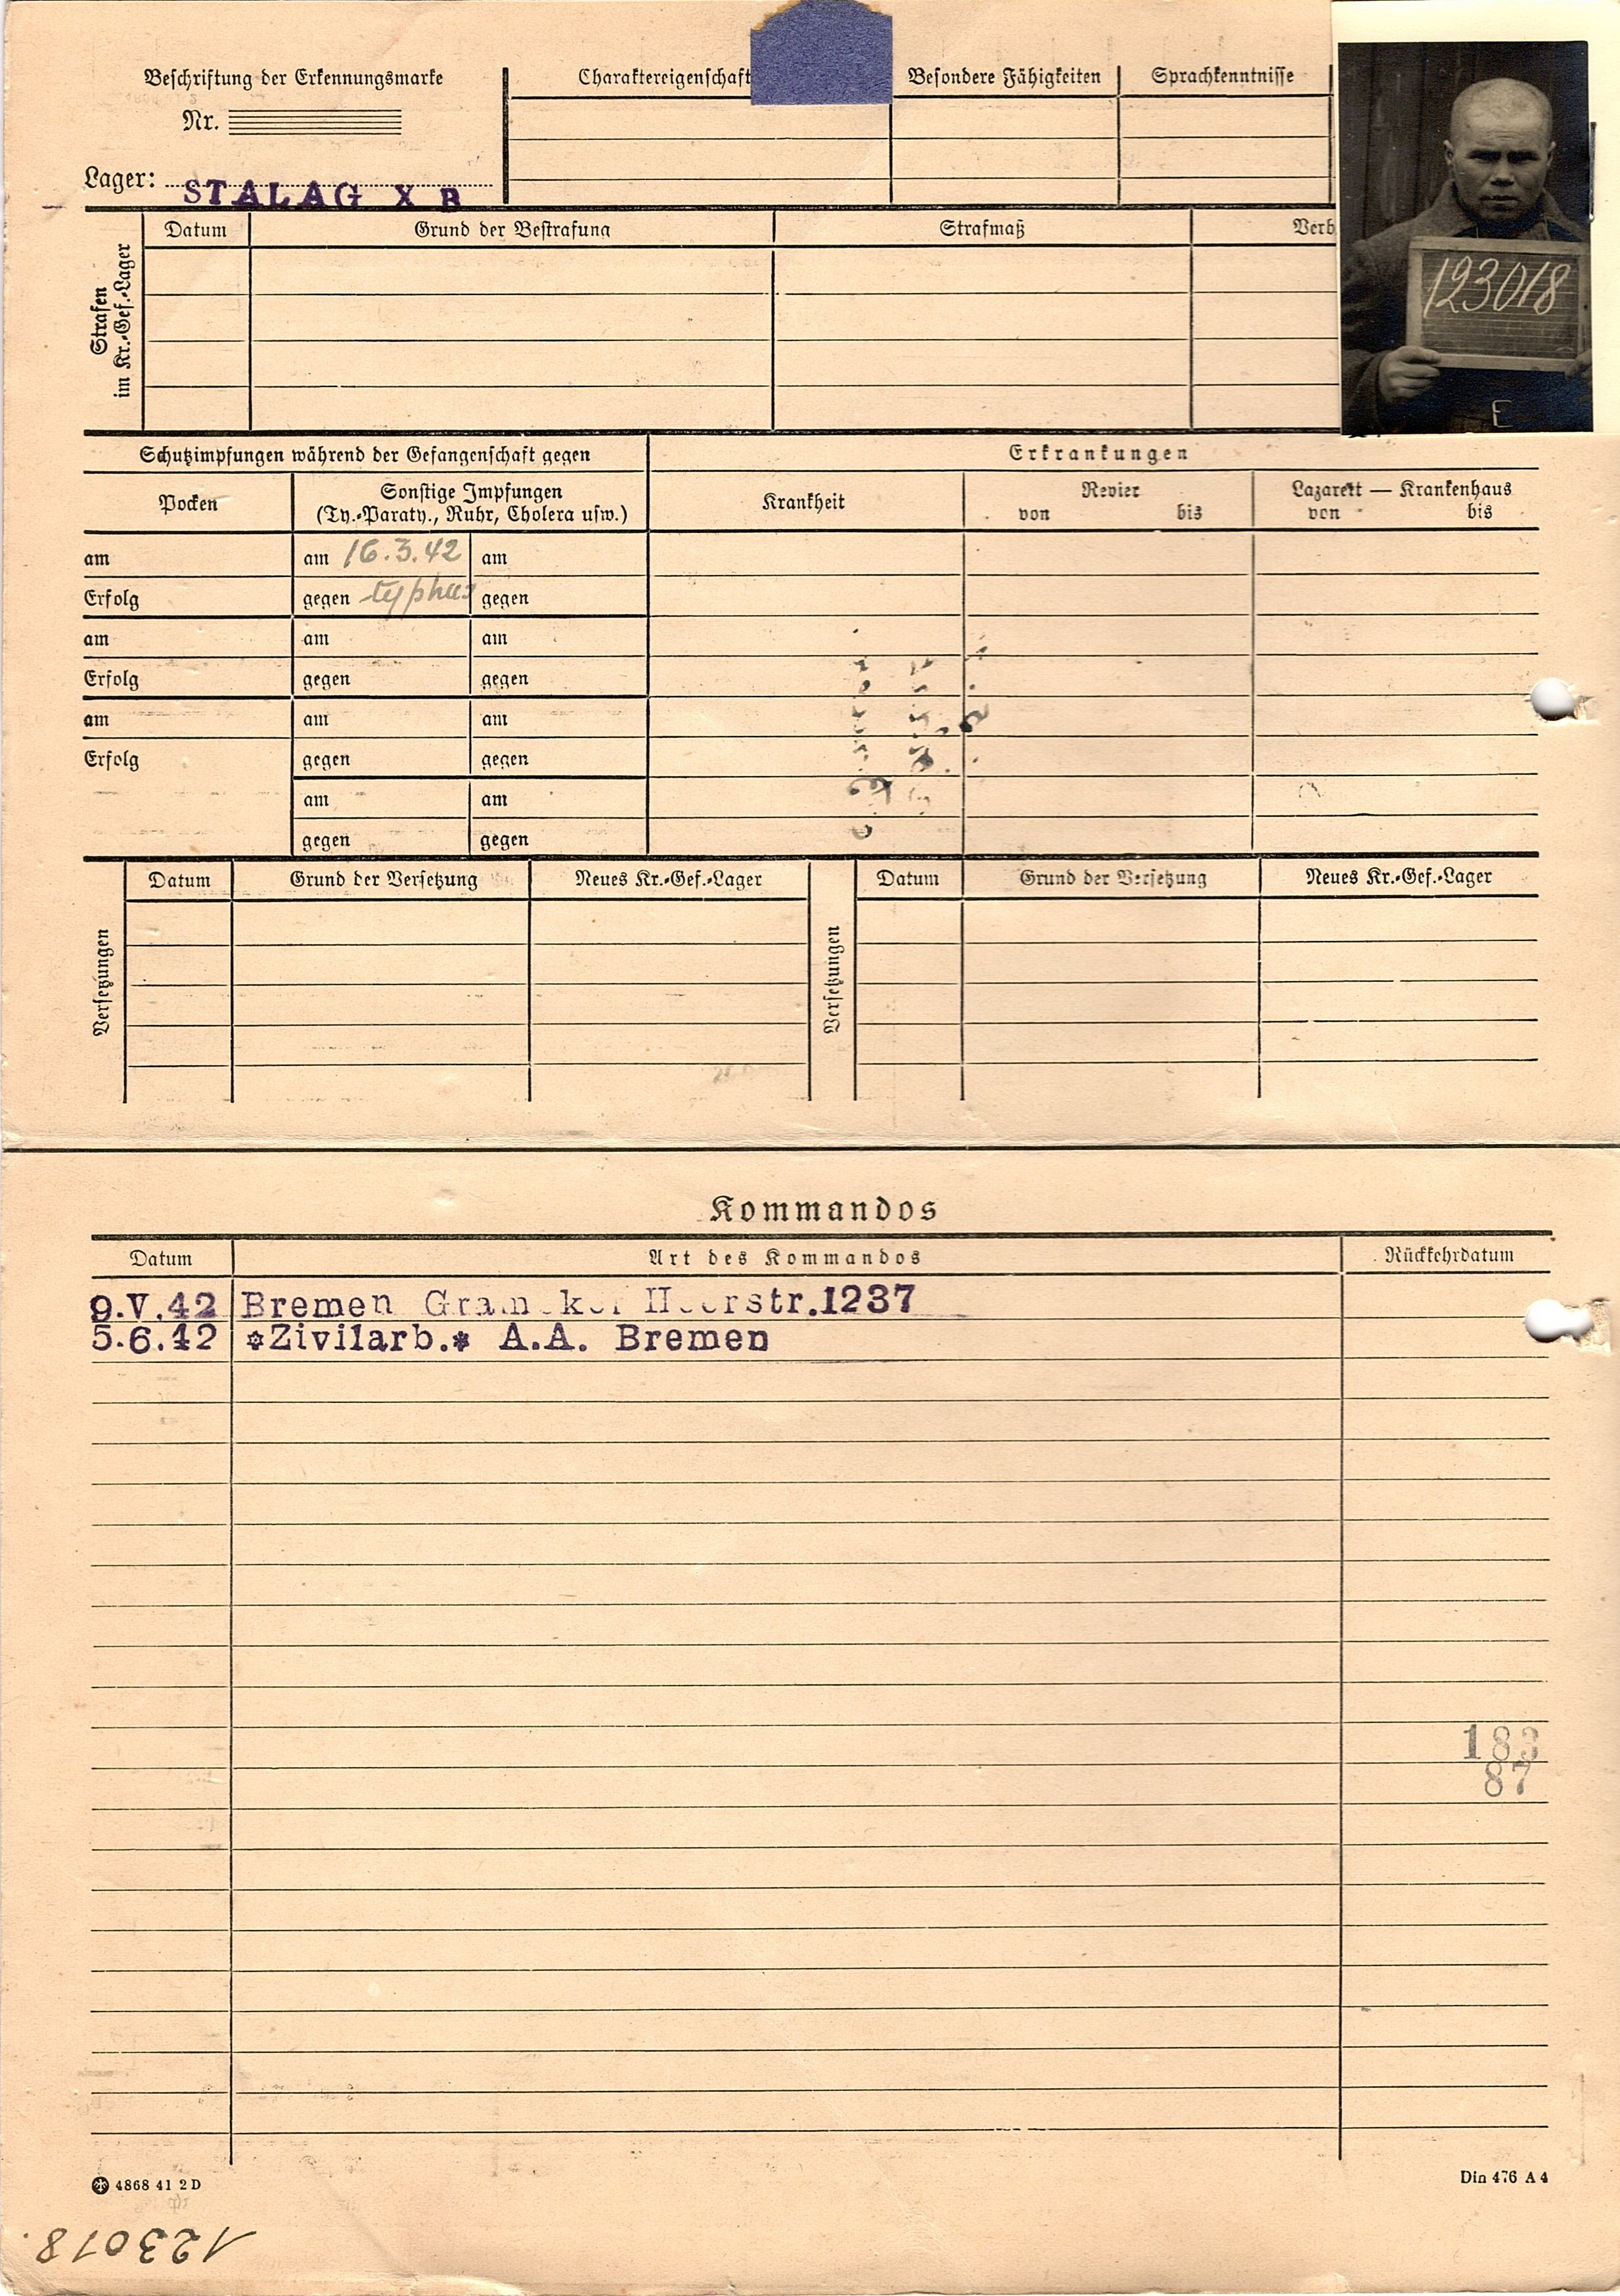 Beschriftung der Erkennungsmarke
Nr.
Lager: STALAG X B
Charaktereigenschaft
Besondere Fähigkeiten
Sprachkenntnisse
123018
E
Strafen im Kr.-Gef.-Lager
Datum
Grund der Bestrafung
Strafmaß
Verb
Schutzimpfungen während der Gefangenschaft gegen
Erkrankungen
Pocken
Sonstige Impfungen
(Ty.-Paraty., Ruhr, Cholera usw.)
Krankheit
Revier
von bis
Lazarett — Krankenhaus
von bis
am am 16.3.42 am
Erfolg gegen typhus gegen
am am am
Erfolg gegen gegen
am am am
Erfolg gegen gegen
am am
gegen gegen
Versetzungen
Datum Grund der Versetzung Neues Kr.-Gef.-Lager
Versetzungen
Datum Grund der Versetzung Neues Kr.-Gef.-Lager
Kommandos
Datum Art des Kommandos Rückkehrdatum
9.V.42 Bremen Heerstr.1237
5.6.42 *Zivilarb.* A.A. Bremen
183
87
4868 41 2 D
Din 476 A 4
123018.